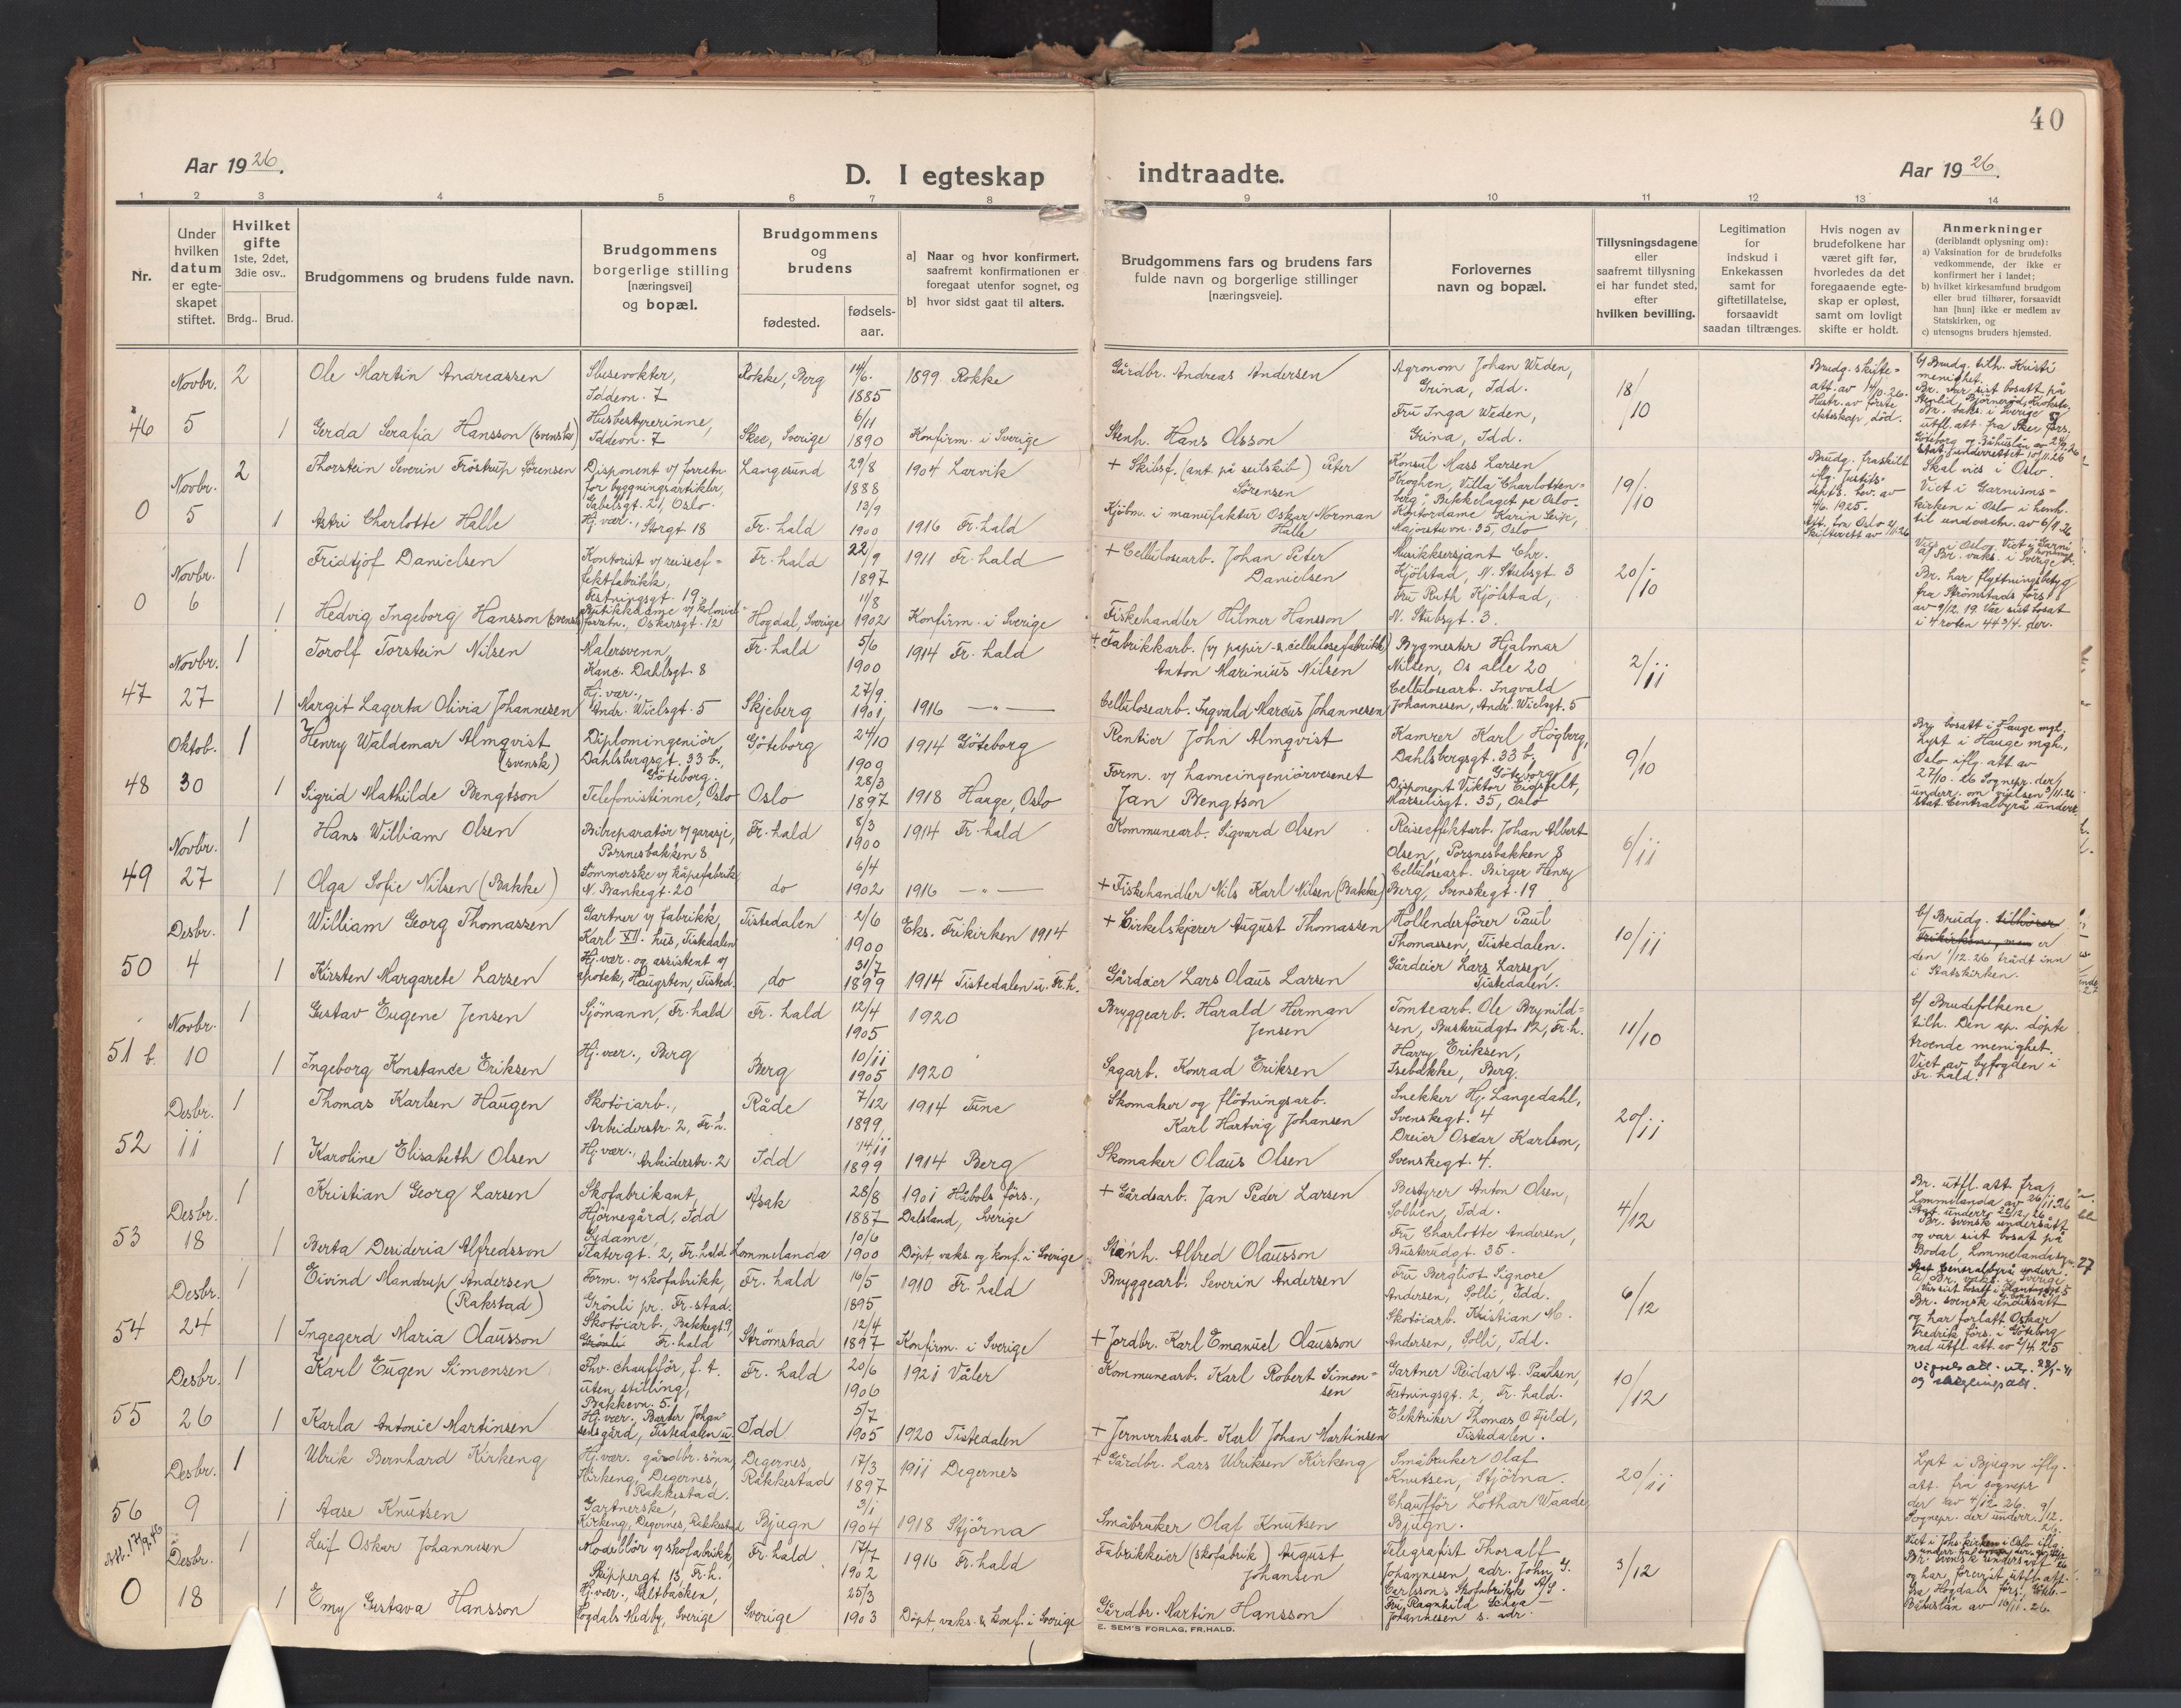 40
Aar 1926.
D. I egteskap indtraadte.
Aar 1926.
1 2 3 4 5 6 7 8 9 10 11 12 13 14
Nr.
Under hvilken datum er egte-skapet stiftet.
Hvilket gifte 1ste, 2det, 3die osv..
Brdg.. Brud.
Brudgommens og brudens fulde navn.
Brudgommens borgerlige stilling [næringsvei] og bopæl.
Brudgommens og brudens
fødested.
fødsels-aar.
a] Naar og hvor konfirmert, saafremt konfirmationen er foregaat utenfor sognet, og
b] hvor sidst gaat til alters.
Brudgommens fars og brudens fars fulde navn og borgerlige stillinger [næringsveie].
Forlovernes navn og bopæl.
Tillysningsdagene eller saafremt tillysning ei har fundet sted, efter hvilken bevilling.
Legitimation for indskud i Enkekassen samt for giftetillatelse, forsaavidt saadan tiltrænges.
Hvis nogen av brudefolkene har været gift før, hvorledes da det foregaaende egte-skap er opløst, samt om lovligt skifte er holdt.
Anmerkninger
(deriblandt oplysning om):
a) Vaksination for de brudefolks vedkommende, der ikke er konfirmert her i landet;
b) hvilket kirkesamfund brudgom eller brud tilhører, forsaavidt han [hun] ikke er medlem av Statskirken, og
c) utensogns bruders hjemsted.
46 Novbr. 5 2 Ole Martin Andreassen Slusevokter, Iddevn. 7 Rokke, Berg 14/6. 1885 1899 Rokke Gårdbr. Andreas Andersen Agronom Johan Weden, Grina, Idd. 18/10 Brudg. skifte-att. av 14/10-26. Hustr. av første ekteskap død.
1 Gerda Serafia Hansson (svensk) Husbestyrerinne, Iddevn. 7 Skee, Sverige 6/11 1890 Konfirm. i Sverige Stenh. Hans Olsson Fru Inga Weden, Grina, Idd.
b/ Brudg. tilh. Kristi menighet.
Br. var sist bosatt på
Br. vaks. i Sverige
0 Novbr. 5 2 Thorstein Severin Fröstrup Sörensen Disponent v/ forretn. for bygningsartikler, Gabelsgt. 21, Oslo. Langesund 29/8 1888 1904 Larvik + Skibsf. (ant. på seilskib) Peter Sörensen Konsul Mass Larsen Kroghen, Villa "Charlotten-berg", Bekkelaget pr Oslo. 19/10 Brudg. fraskilt iflg. justits-dept's. bev. av 4/6. 1925.
1 Astri Charlotte Halle Hj. vær., Storgt 18 Fr. hald 13/9 1900 1916 Fr. hald Kjöbm. i manufaktur Oskar Norman Halle Kontordame Karin Leik, Majorstuvn. 35, Oslo
Skal vies i Oslo.
Viet i Garnisons-kirken i Oslo i henh. til underretn. av 6/11.26
0 Novbr. 6 1 Fridtjof Danielsen Kontorist v/ reiseef-fektfabrikk, Festningsgt. 19. Fr. hald 22/9 1897 1911 Fr. hald + Cellulosearb. Johan Peter Danielsen Musikksersjant Chr. Kjölstad, N. Stubsgt. 3 20/10
1 Hedvig Ingeborg Hansson (svensk) Butikkdame v/ kolonial-forretn., Oskarsgt. 12 Hogdal, Sverige 11/8 1902 Konfirm. i Sverige Fiskehandler Hilmer Hansson Fru Ruth Kjölstad, N. Stubsgt. 3.
Br. har flyttningsbetyg fra Strömstads förs. av 9/12. 19. Var sist bosat i 4 roten 44 3/4. der.
47 Novbr. 27 1 Torolf Torstein Nilsen Malersvenn, Kanc. Dahlsgt. 8 Fr. hald 5/6 1900 1914 Fr. hald + Fabrikkarb. (v/ papir- & cellulosefabrikk) Anton Marinius Nilsen Bygmester Hjalmar Nilsen, Os alle 20 2/11
1 Margit Lagerta Olivia Johannesen Hj. vær., Andr. Wielsgt. 5 Skjeberg 27/9. 1901, 1916 —"— Cellulosearb. Ingvald Marcus Johannesen Cellulosearb. Ingvald Johannesen, Andr. Wielsgt. 5
48 Oktob. 30 1 Henry Waldemar Almqvist (svensk) Diplomingeniör, Dahlsbergsgt. 33 b., Göteborg. Göteborg 24/10 1909 1914 Göteborg Rentier John Almqvist Kamrer Karl Högberg, Dahlsbergsgt. 33 b., Göteborg 9/10
1 Sigrid Mathilde Bengtson Telefonistinne, Oslo Oslo 28/3 1897 1918 Hauge, Oslo Form. v/ havneingeniörvesenet Jan Bengtson Disponent Viktor Eidsfelt, Marselisgt. 35, Oslo
Brp. bosatt i Hauge mgh.
Lyst i Hauge mgh., Oslo iflg. att av 27/10. 26 Sognepr. der/ underr. om vielsen 3/11.26
stat. Centralbyrå underr.
49 Novbr. 27 1 Hans William Olsen Bilreparatör v/ garasje, Porsnesbakken 8 Fr. hald 8/3 1900 1914 Fr. hald Kommunearb. Sigvard Olsen Reiseeffektarb. Johan Albert Olsen, Porsnesbakken 8 6/11
1 Olga Sofie Nilsen (Bakke) Sömmerske v/ kåpefabrik N. Bankegt. 20 do 6/4 1902 1916 —"— + Fiskehandler Nils Karl Nilsen (Bakke) Cellulosearb. Birger Henry Berg, Svenskegt. 19
50 Desbr. 4 1 William Georg Thomassen Gartner v/ fabrikk, Karl XII. hus, Tistedalen Tistedalen 2/6 1900 Eks. Frikirken 1914 + Cirkelskjærer August Thomassen Hollenderförer Paul Thomassen, Tistedalen. 10/11
1 Kirsten Margarete Larsen Hj. vær. og assistent v/ apotek, Haugsten, Tisted. do 31/7 1899 1914 Tistedalen u. Fr.h. Gårdeier Lars Olaus Larsen Gårdeier Lars Larsen, Tistedalen.
b/ Brudg. tilhörer Frikirken, men er den 1/12.26 trådt inn i Statskirken.
51 b. Novbr. 10 1 Gustav Eugene Jensen Sjömann, Fr. hald Fr. hald 12/4 1905 1920 Bryggearb. Harald Herman Jensen Tomtearb. Ole Brynild-sen, Busterudgt. 12, Fr.h. 11/10
1 Ingeborg Konstanse Eriksen Hj. vær., Berg Berg 10/11 1905 1920 Sagarb. Konrad Eriksen Harry Eriksen, Isebakke, Berg.
b/ Brudefolkene tilh. Den ap. döpte troende menighet.
Viet av byfogden i Fr. hald.
52 Desbr. 11 1 Thomas Karlsen Haugen Skotöiarb., Arbeiderstr. 2, Fr. h. Råde 7/12 1899, 1914 Tune Skomaker og flötningsarb. Karl Hartvig Johansen Snekker Hj. Langedahl, Svenskegt. 4 20/11
1 Karoline Elisabeth Olsen Hj. vær., Arbeiderstr. 2 Idd 14/11 1899 1914 Berg Skomaker Olaus Olsen Dreier Oscar Karlson, Svenskegt. 4.
53 Desbr. 18 1 Kristian Georg Larsen Skofabrikant, Hjörnegård, Idd Asak 28/8 1887 1901 Håbols förs., Dalsland, Sverige + Gårdsarb. Jan Peder Larsen Bestyrer Anton Olsen, Sollien, Idd. 4/12
1 Berta Desideria Alfredsson Sydame, Flatergt. 2, Fr. hald Lommelanda 10/6 1900 Döpt, vaks. og konf. i Sverige Stenh. Alfred Olausson Fru Charlotte Andersen, Busterudgt. 35.
Br. utfl. att. fra Lommelanda av 26/11.26
Br. svensk undersått og var sist bosat på Bodal, Lommelanda
54 Desbr. 24 1 Eivind Mandrup Andersen (Rakstad) Form. v/ skofabrikk, Grönli pr. Fr. stad. Fr. hald 16/5 1895 1910 Fr. hald Bryggearb. Severin Andersen Fru Bergliot Signore Andersen, Solli, Idd. 6/12
1 Ingegerd Maria Olausson Skotöiarb., Bakkegt. 9, Grönli Fr. hald Strömstad 12/4 1897 Konfirm. i Sverige + Jordbr. Karl Emanuel Olausson Skotöiarb. Kristian M. Andersen, Solli, Idd.
Br. svensk undersått og har forlatt Oskar Fredrik förs. i Göteborg med utfl. att. av 2/4. 25
55 Desbr. 26 1 Karl Eugen Simensen Fhv. chaufför, f. t. uten stilling, Bakkevn. 5. Fr. hald 20/6 1906 1921 Våler Kommunearb. Karl Robert Simen-sen Gartner Reidar A. Paulsen, Festningsgt. 2, Fr. hald. 10/12
1 Karla Antonie Martinsen Hj. vær. Barber Johan-sensgård, Tistedalen u. Idd 5/7 1905 1920 Tistedalen + Jernverksarb. Karl Johan Martinsen Elektriker Thomas O. Fjeld, Tistedalen.
56 Desbr. 9 1 Ulrik Bernhard Kirkeng Hj. vær. gårdbr. sönn, Kirkeng, Degernes, Rakkestad. Degernes, Rakkestad 17/3 1897 1911 Degernes + Gårdbr. Lars Ulriksen Kirkeng Småbruker Olaf Knutsen, Stjörna. 20/11
1 Aase Knutsen Gartnerske, Kirkeng, Degernes, Rakkestad Bjugn 3/1 1904 1918 Stjörna Småbruker Olaf Knutsen Chaufför Lothar Waade, Bjugn.
Lyst i Bjugn iflg. att. fra sognepr der av 4/12 26. Sognepr. der underr. 9/12. 26.
Att. 17/9.46
0 Desbr. 18 1 Leif Oskar Johannesen Modellör v/ skofabrikk, Skippergt. 13, Fr. h. Fr. hald 17/7 1902 1916 Fr. hald Fabrikkeier (skofabrik) August Johansen Telegrafist Thoralf Johannesen, adr. John J. Carlsson's Skofabrikk A/S. 3/12
1 Emy Gustava Hansson Hj. vær., Saltbacken, Hogdals Nedby, Sverige Sverige 25/3 1903 Döpt, vaks. & konf. i Sverige Gårdbr. Martin Hansson Fru Ragnhild Johannesen s. adr.
Br. svensk undersått
fra Hogdals förs., Göteb.- Båhuslän av 16/11. 26.
E. SEM'S FORLAG, FR.HALD.